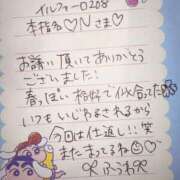 イルファーロ208
本指名♡Nさま♡
お誘い頂いてありがとう
ございました!
春っぽい格好で似合ってた
いつもいじわるされるから
今回は仕返し!!笑
またまってるね♡
ふうわ